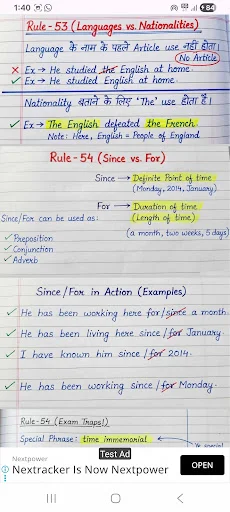 1:40
84
Rule - 53 (Languages vs. Nationalities)
Language के नाम के पहले Article use नहीं होता।
(No Article)
✗ Ex → He studied the English at home.
✓ Ex → He studied English at home.
Nationality बताने के लिए 'The' use होता है।
✓ Ex → The English defeated the French.
Note: Here, English = People of England
Rule - 54 (Since vs. For)
Since → Definite Point of time
(Monday, 2014, January)
For → Duration of time
(Length of time)
(a month, two weeks, 5 days)
Since/For can be used as:
✓ Preposition
✓ Conjunction
✓ Adverb
Since / For in Action (Examples)
✓ He has been working here for/since a month.
✓ He has been living here since/for January.
✓ I have known him since/for 2014.
✓ He has been working since/for Monday.
Rule - 54 (Exam Traps!)
Special Phrase: time immemorial
Test Ad
Nextpower
Nextracker Is Now Nextpower
OPEN